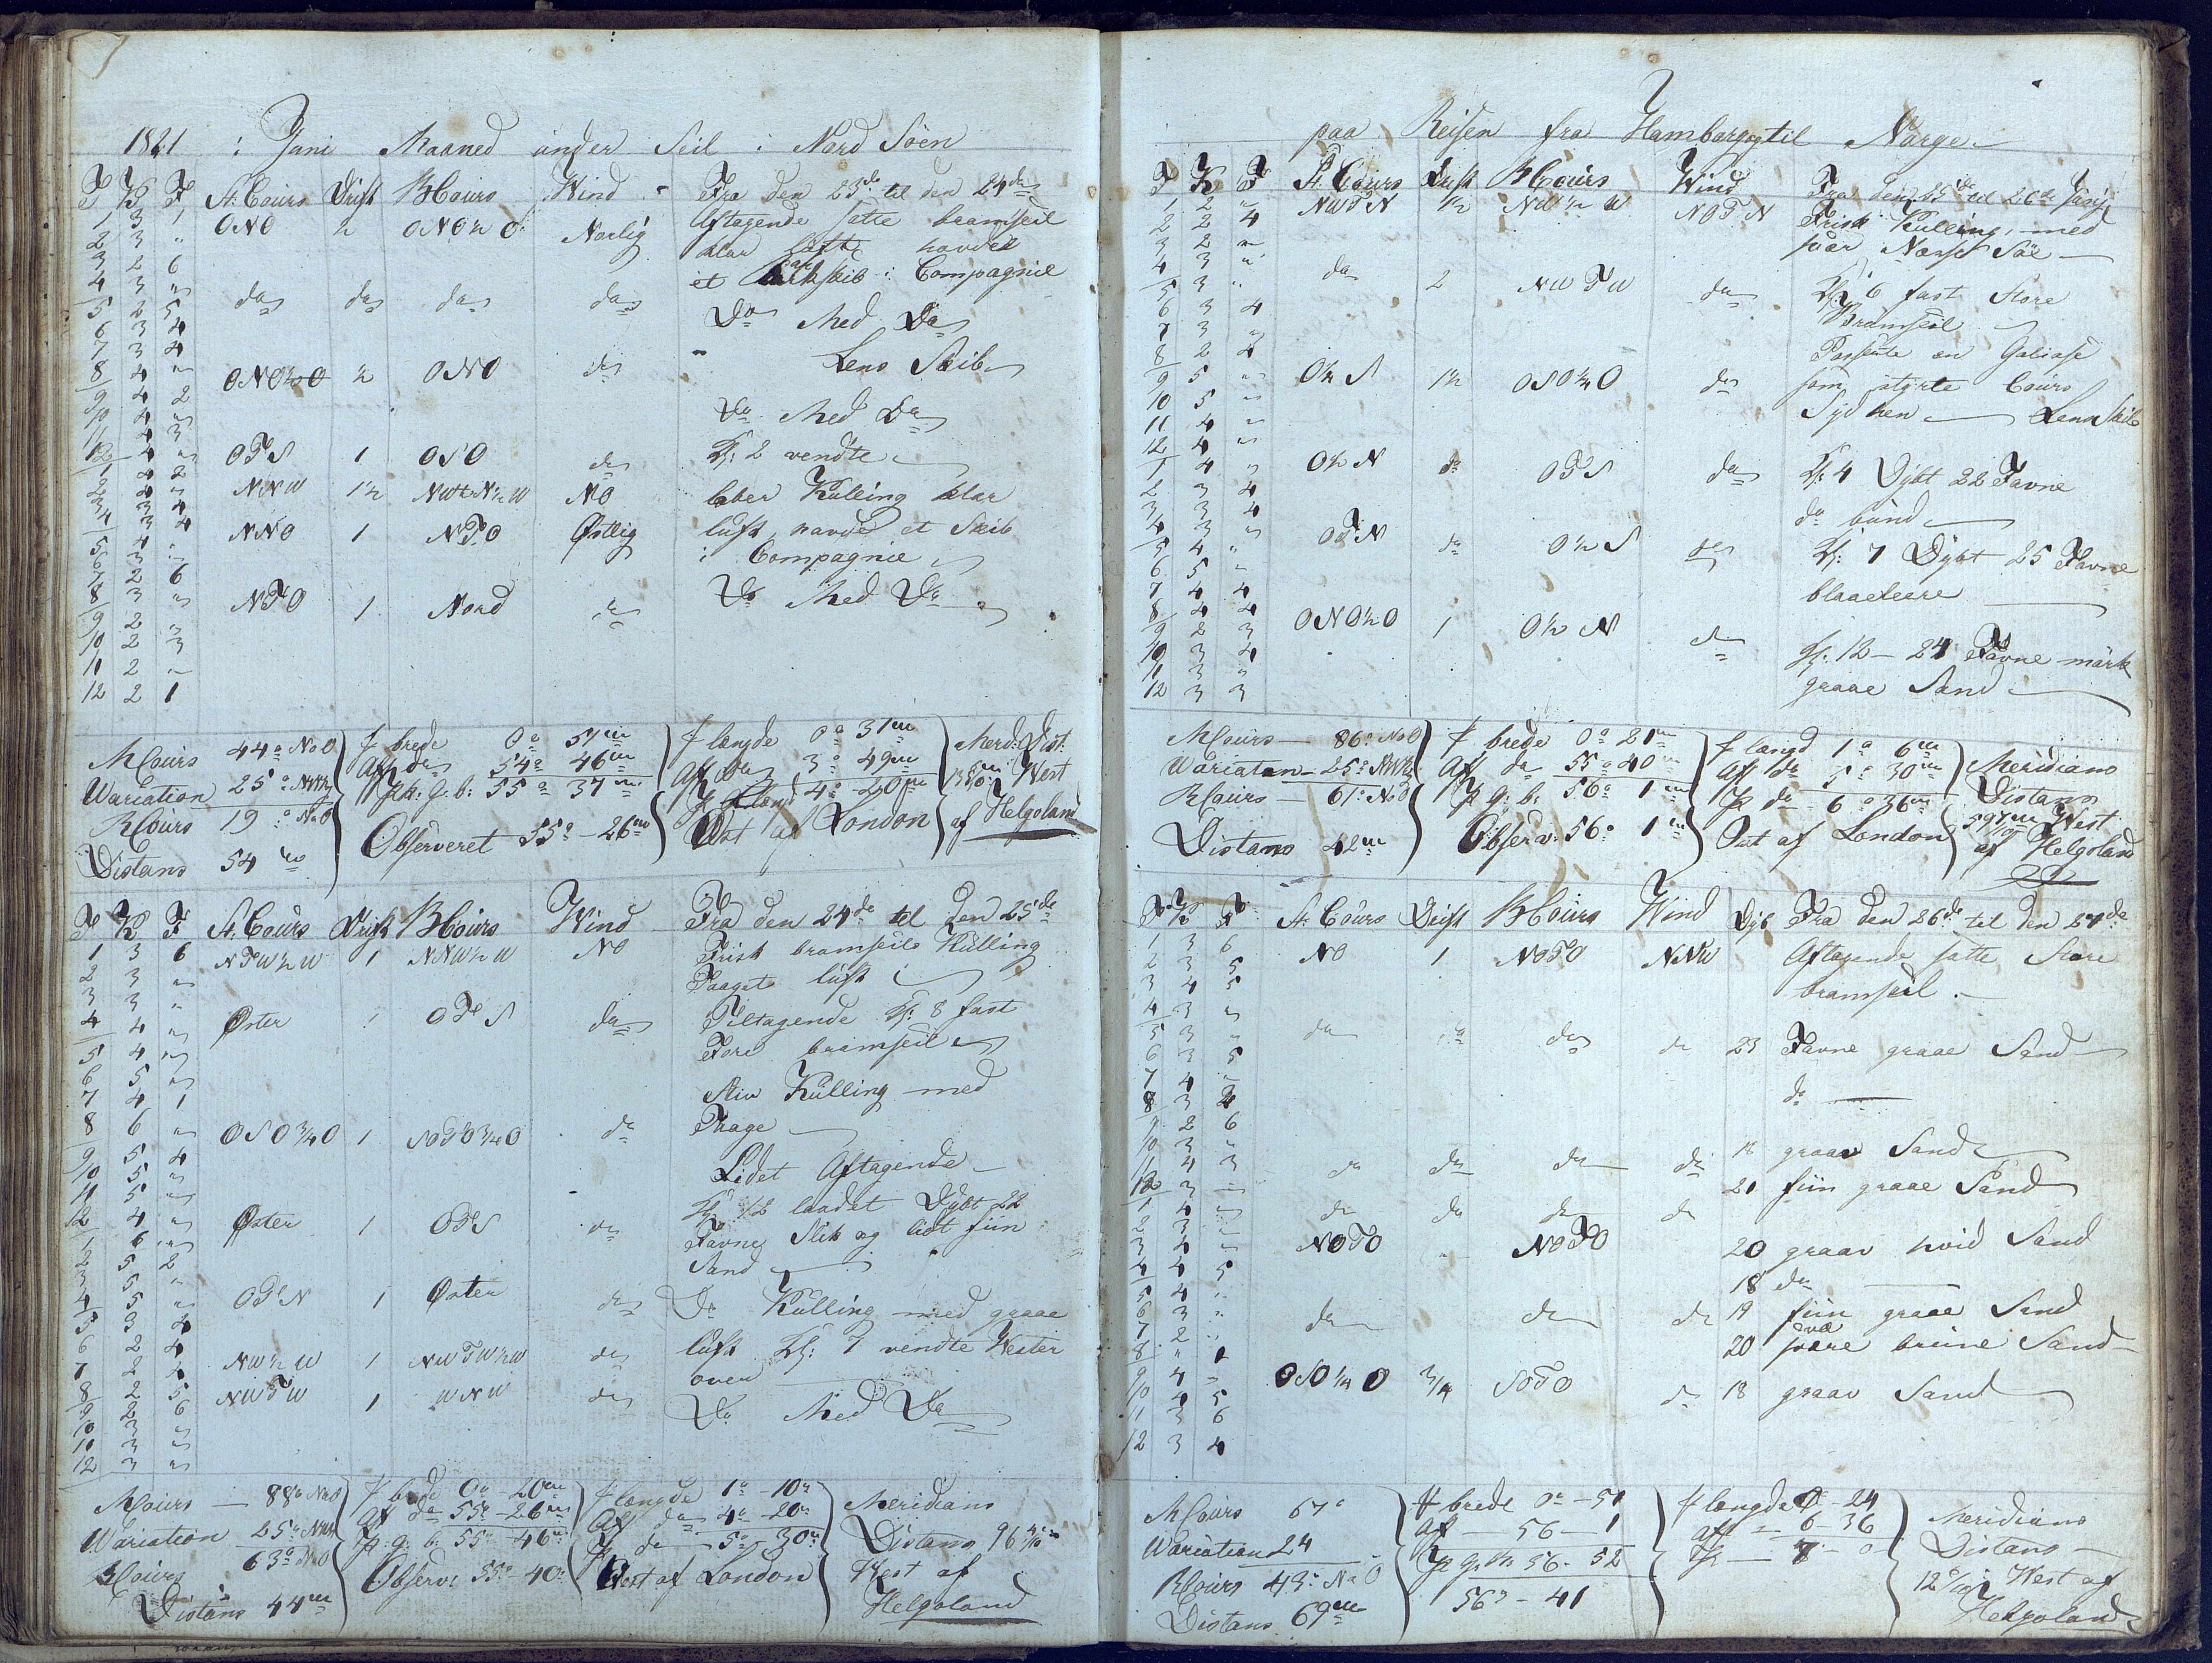 1821 i Juni Maaned under Seil i Nord Söen
T K F St. Cours Drift B Cours Wind Fra den 23de til den 24de
1 3 1 ONO ½ ONO½O Norlig Aftagende satte bramseil
2 3 " klar luft havde
3 2 6 et Skib i Compagnie
4 3 " do do do do
5 2 5 Do Med Do
6 3 4
7 3 4
8 4 " ONO½O ½ ONO do Lens Skib
9 4 2
10 4 " Do Med Do
11 4 3
12 4 " OTS 1 OSO do Kl: 2 vendte
1 4 2
2 4 " NNW 1½ NWTN½W NO laber Kulling klar
3 3 4
4 3 4 NNO 1 NTO Østlig luft, havde et Skib
5 4 " i Compagnie
6 3 "
7 2 6
8 3 " NTO 1 Nord do Do Med Do
9 2 "
10 2 3
11 2 "
12 2 1
M Cours 44° NoO
Wariation 25° NW
R Cours 19° NoO
Distans 54 m
f brede 0° 51m
Af do 54° 46m
p. g. b: 55° 37m
Observeret 55° - 26m
f længde 0° 31m
Af do 3° 49m
4° 20m
Ost af London
Merd: Dist:
West
af Helgoland
T K F St. Cours Drift B Cours Wind Fra den 24de til den 25de
1 3 6 NTW½W 1 NNW½W NO Frisk bramseils Kulling
2 3 " Taaget luft
3 3 "
4 4 " Øster 1 OTS do Tiltagende Kl: 8 fast
5 4 " Fore bramseil
6 5 "
7 4 1 Stiv Kulling med
8 6 " OSO¾O 1 SOTO¾O do Taage
9 5 4
10 5 " Lidet Aftagende
11 5 "
12 4 " Øster 1 OTS do Kl 12 loadet Dybt 22
1 6 " Favne Slik og lidt fiin
2 5 2 Sand
3 5 "
4 5 " OTN 1 Øster do Do Kulling med graae
5 3 4
6 2 4 NW½W 1 NWTW½W do luft Kl: 7 vendte Wester
7 2 4 over
8 2 5 NWTW 1 WNW do
9 2 6 Do Med Do
10 3 "
11 3 "
12 3 "
M Cours 88° NoO
Wariation 25° NW
R Cours 63° NoO
Distans 44m
f brede 0° - 20m
Af do 55° - 26m
p. g. b: 55° - 46m
Observ: 55° - 40m
f længde 1° - 10m
Af do 4° - 20m
p do 5° - 30m
Ost af London
Meridians
Distans 96
West af
Helgoland
paa Reisen fra Hamborg til Norge
T K F St. Cours Drift B Cours Wind Fra den 25de til 26de Juny
1 2 " NWTN 1½ NW½W NOTN Frisk Kulling, med
2 2 4 svær Norsk Söe
3 2 "
4 3 " do 2 NWTW do Kl: 6 fast Store
5 3 " Bramseil
6 3 4
7 3 " Passerte en Galiase
8 2 4
9 5 " O½S 1½ OSO½O do som styrte Cours
10 5 " Syd hen Lens Skib
11 4 "
12 4 "
1 4 " O½N do OTS do Kl: 4 Dybt 22 Favne
2 3 4
3 3 4 do bund
4 3 "
5 4 " OTN do O½S do Kl: 7 Dybt 25 Favne
6 5 "
7 4 4 blaaeleere
8 4 4
9 2 3 ONO½O 1 O½N do
10 3 4 Kl: 12 - 24 Favne mörk
11 3 "
12 3 3 graae Sand
M Cours 86° NoO
Wariation 25° NW
R Cours 61° NoO
Distans 42m
f brede 0° 21m
Af do 55° 40m
p. g. b. 56° 1m
Observ: 56° 1m
f længd 1° 6m
af do 5° 30m
p do 6° 36m
Ost af London
Meridians
Distans
West
af Helgoland
T K F St. Cours Drift B Cours Wind Dyb Fra den 26de til den 27de
1 3 6 NO 1 NOTO NNW Aftagende satte Store
2 3 5
3 4 5 bramseil
4 3 "
5 3 " do do do do 23 Favne graae Sand
6 3 5
7 4 " do
8 3 4
9 2 6
10 3 " 18 graae Sand
11 4 3 do do do do
12 3 " 21 fiin graae Sand
1 4 " do do do do
2 3 "
3 4 " NOTO " NOTO 20 graae hvid Sand
4 4 5 18 do
5 4 "
6 3 " do do do 19 fiin graae Sand
7 2 " 20 brune Sand
8 " 1
9 4 " OSO¼O ¾ SOTO do 18 graae Sand
10 4 5
11 3 6
12 3 4
M Cours 67°
Wariation 24
R Cours 43° NoO
Distans 69m
f brede 0° - 51
Af 56 - 1
p g. b. 56 - 52
56° - 41
f længde 0 - 24
af 6 - 36
p 7 - 0
Meridians
Distans
West af
Helgoland